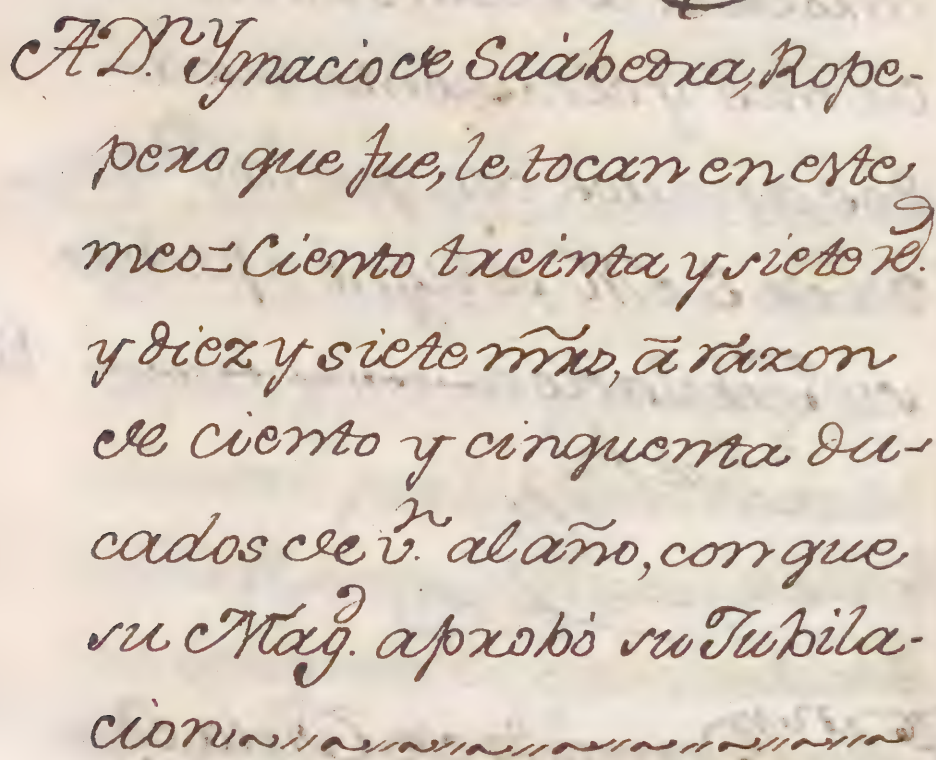 A D.ⁿ Ygnacio de Saábedra, Rope-
pero que fue, le tocan en este
mes = Ciento treinta y siete r.ˢ
y diez y siete m̃rs, ā razon
de ciento y cinquenta du-
cados de v.ⁿ al año, con que
su Mag.ᵈ aprobó su Jubila-
cion